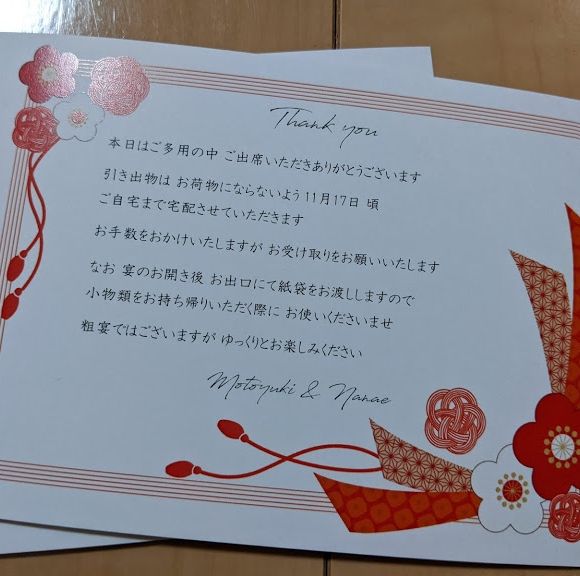 Thank you
本日はご多用の中 ご出席いただきありがとうございます
引き出物は お荷物にならないよう 11月17日 頃
ご自宅まで宅配させていただきます
お手数をおかけいたしますが お受け取りをお願いいたします
なお 宴のお開き後 お出口にて紙袋をお渡ししますので
小物類をお持ち帰りいただく際に お使いくださいませ
粗宴ではございますが ゆっくりとお楽しみください
Motoyuki & Nanae